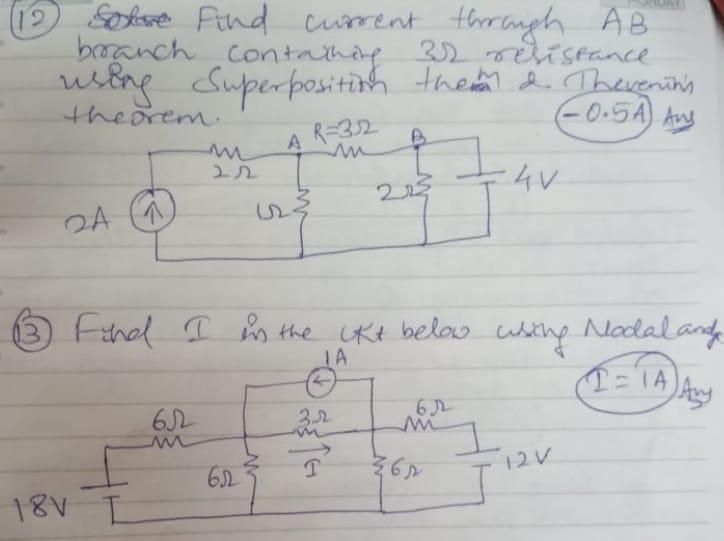 MONDAY
(12) Solve Find current through AB
branch containing 3Ω resistance
using Superposition them & Thevenin's
theorem.
-0.5A Ans
A R=3Ω B
2Ω
2A
1Ω
2Ω
4V
(13) Find I in the ckt below using Nodal
1A
I = 1A Ans
6Ω 3Ω 6Ω
6Ω I 6Ω
12V
18V